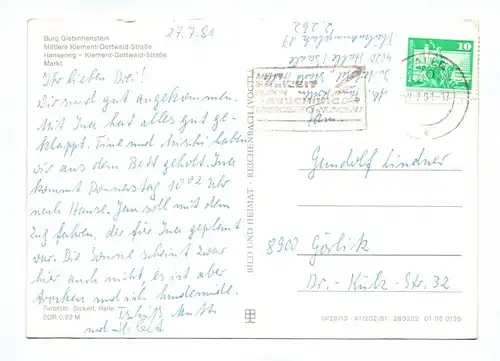 Burg Giebichenstein
Mittlere Klement-Gottwald-Straße
Hansering – Klement-Gottwald-Straße
Markt
27.7.81
Ihr lieben Drei!
Wir sind gut angekommen.
Mit Ina hat alles gut ge-
klappt. Tine und Muschi haben
wir aus dem Bett geholt. Ina
kommt Donnerstag 10 02 Uhr
nach Hause. Jan soll mit dem
Zug fahren, der für Ina geplant
war. Die Sonne scheint zwar
hier auch nicht, es ist aber
trocken und ich sindermild.
Tschüß Mutti
und
Farbfoto: Sickert, Halle
DDR 0,20 M
BILD UND HEIMAT REICHENBACH (VOGTL)
4020 Halle / Saale
2.262
DDR
10
Gundolf Lindner
8900 Görlitz
Dr.-Külz-Str. 32
A1/202/81 01 06 0136